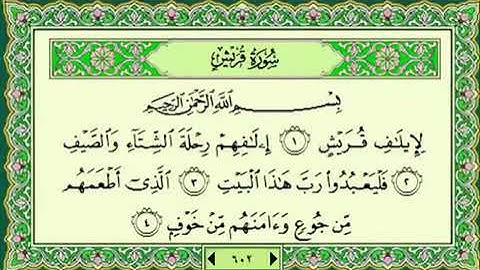 سُورَةُ قُرَيْشٍ
بِسْمِ ٱللَّهِ ٱلرَّحْمَٰنِ ٱلرَّحِيمِ
لِإِيلَٰفِ قُرَيْشٍ ١ إِۦلَٰفِهِمْ رِحْلَةَ ٱلشِّتَآءِ وَٱلصَّيْفِ
٢ فَلْيَعْبُدُوا۟ رَبَّ هَٰذَا ٱلْبَيْتِ ٣ ٱلَّذِىٓ أَطْعَمَهُم
مِّن جُوعٍ وَءَامَنَهُم مِّنْ خَوْفٍۭ ٤
٦٠٢